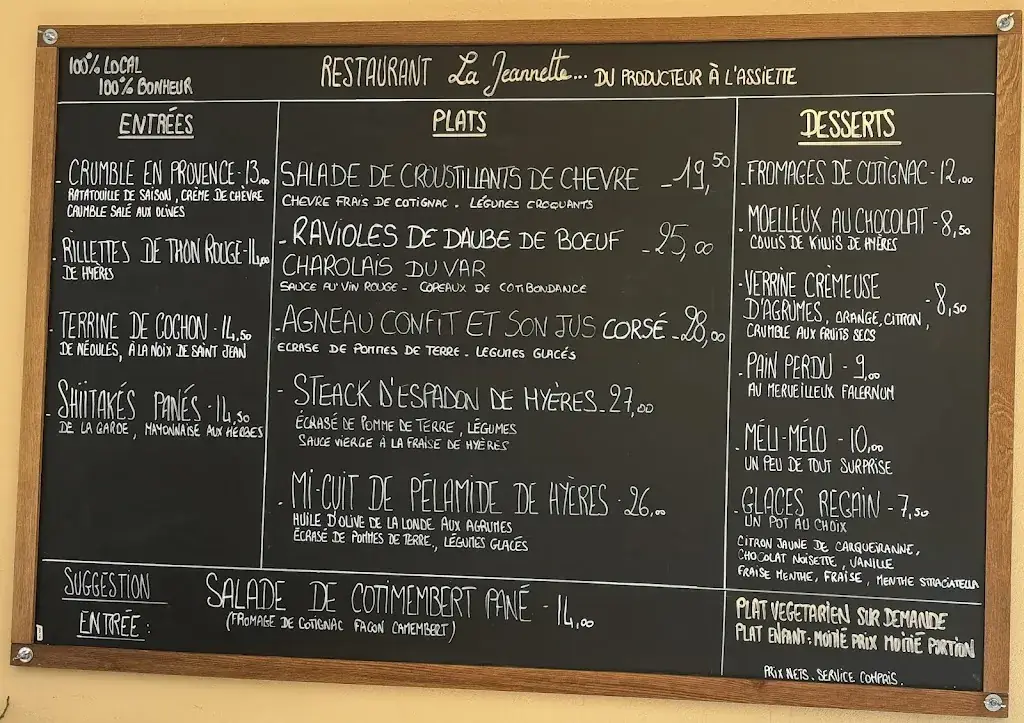 100% LOCAL
100% BONHEUR
RESTAURANT La Jeannette... DU PRODUCTEUR À L'ASSIETTE
ENTRÉES
- CRUMBLE EN PROVENCE - 13,00
RATATOUILLE DE SAISON, CRÈME DE CHÈVRE
CRUMBLE SALÉ AUX OLIVES
- RILLETTES DE THON ROUGE - 14,00
DE HYÈRES
- TERRINE DE COCHON - 14,50
DE NÉOULES, À LA NOIX DE SAINT JEAN
- SHIITAKÉS PANÉS - 14,50
DE LA GARDE, MAYONNAISE AUX HERBES
PLATS
SALADE DE CROUSTILLANTS DE CHEVRE - 19,50
CHEVRE FRAIS DE COTIGNAC - LÉGUMES CROQUANTS
- RAVIOLES DE DAUBE DE BOEUF - 25,00
CHAROLAIS DU VAR
SAUCE AU VIN ROUGE - COPEAUX DE COTIBONDANCE
- AGNEAU CONFIT ET SON JUS CORSÉ - 28,00
ECRASE DE POMMES DE TERRE - LEGUMES GLACÉS
- STEACK D'ESPADON DE HYÈRES - 27,00
ÉCRASÉ DE POMME DE TERRE, LÉGUMES
SAUCE VIERGE À LA FRAISE DE HYÈRES
- MI-CUIT DE PÉLAMIDE DE HYÈRES - 26,00
HUILE D'OLIVE DE LA LONDE AUX AGRUMES
ÉCRASÉ DE POMMES DE TERRE, LÉGUMES GLACÉS
DESSERTS
- FROMAGES DE COTIGNAC - 12,00
- MOELLEUX AU CHOCOLAT - 8,50
COULIS DE KIWIS DE HYÈRES
- VERRINE CRÈMEUSE
D'AGRUMES, ORANGE, CITRON, - 8,50
CRUMBLE AUX FRUITS SECS
- PAIN PERDU - 9,00
AU MERVEILLEUX FALERNUM
- MÉLI-MÉLO - 10,00
UN PEU DE TOUT SURPRISE
- GLACES REGAIN - 7,50
UN POT AU CHOIX
CITRON JAUNE DE CARQUEIRANNE,
CHOCOLAT NOISETTE, VANILLE
FRAISE MENTHE, FRAISE, MENTHE STRACIATELLA
SUGGESTION
ENTRÉE :
SALADE DE COTIMEMBERT PANÉ - 14,00
(FROMAGE DE COTIGNAC FAÇON CAMEMBERT)
PLAT VEGETARIEN SUR DEMANDE
PLAT ENFANT : MOITIÉ PRIX MOITIÉ PORTION
PRIX NETS. SERVICE COMPRIS.